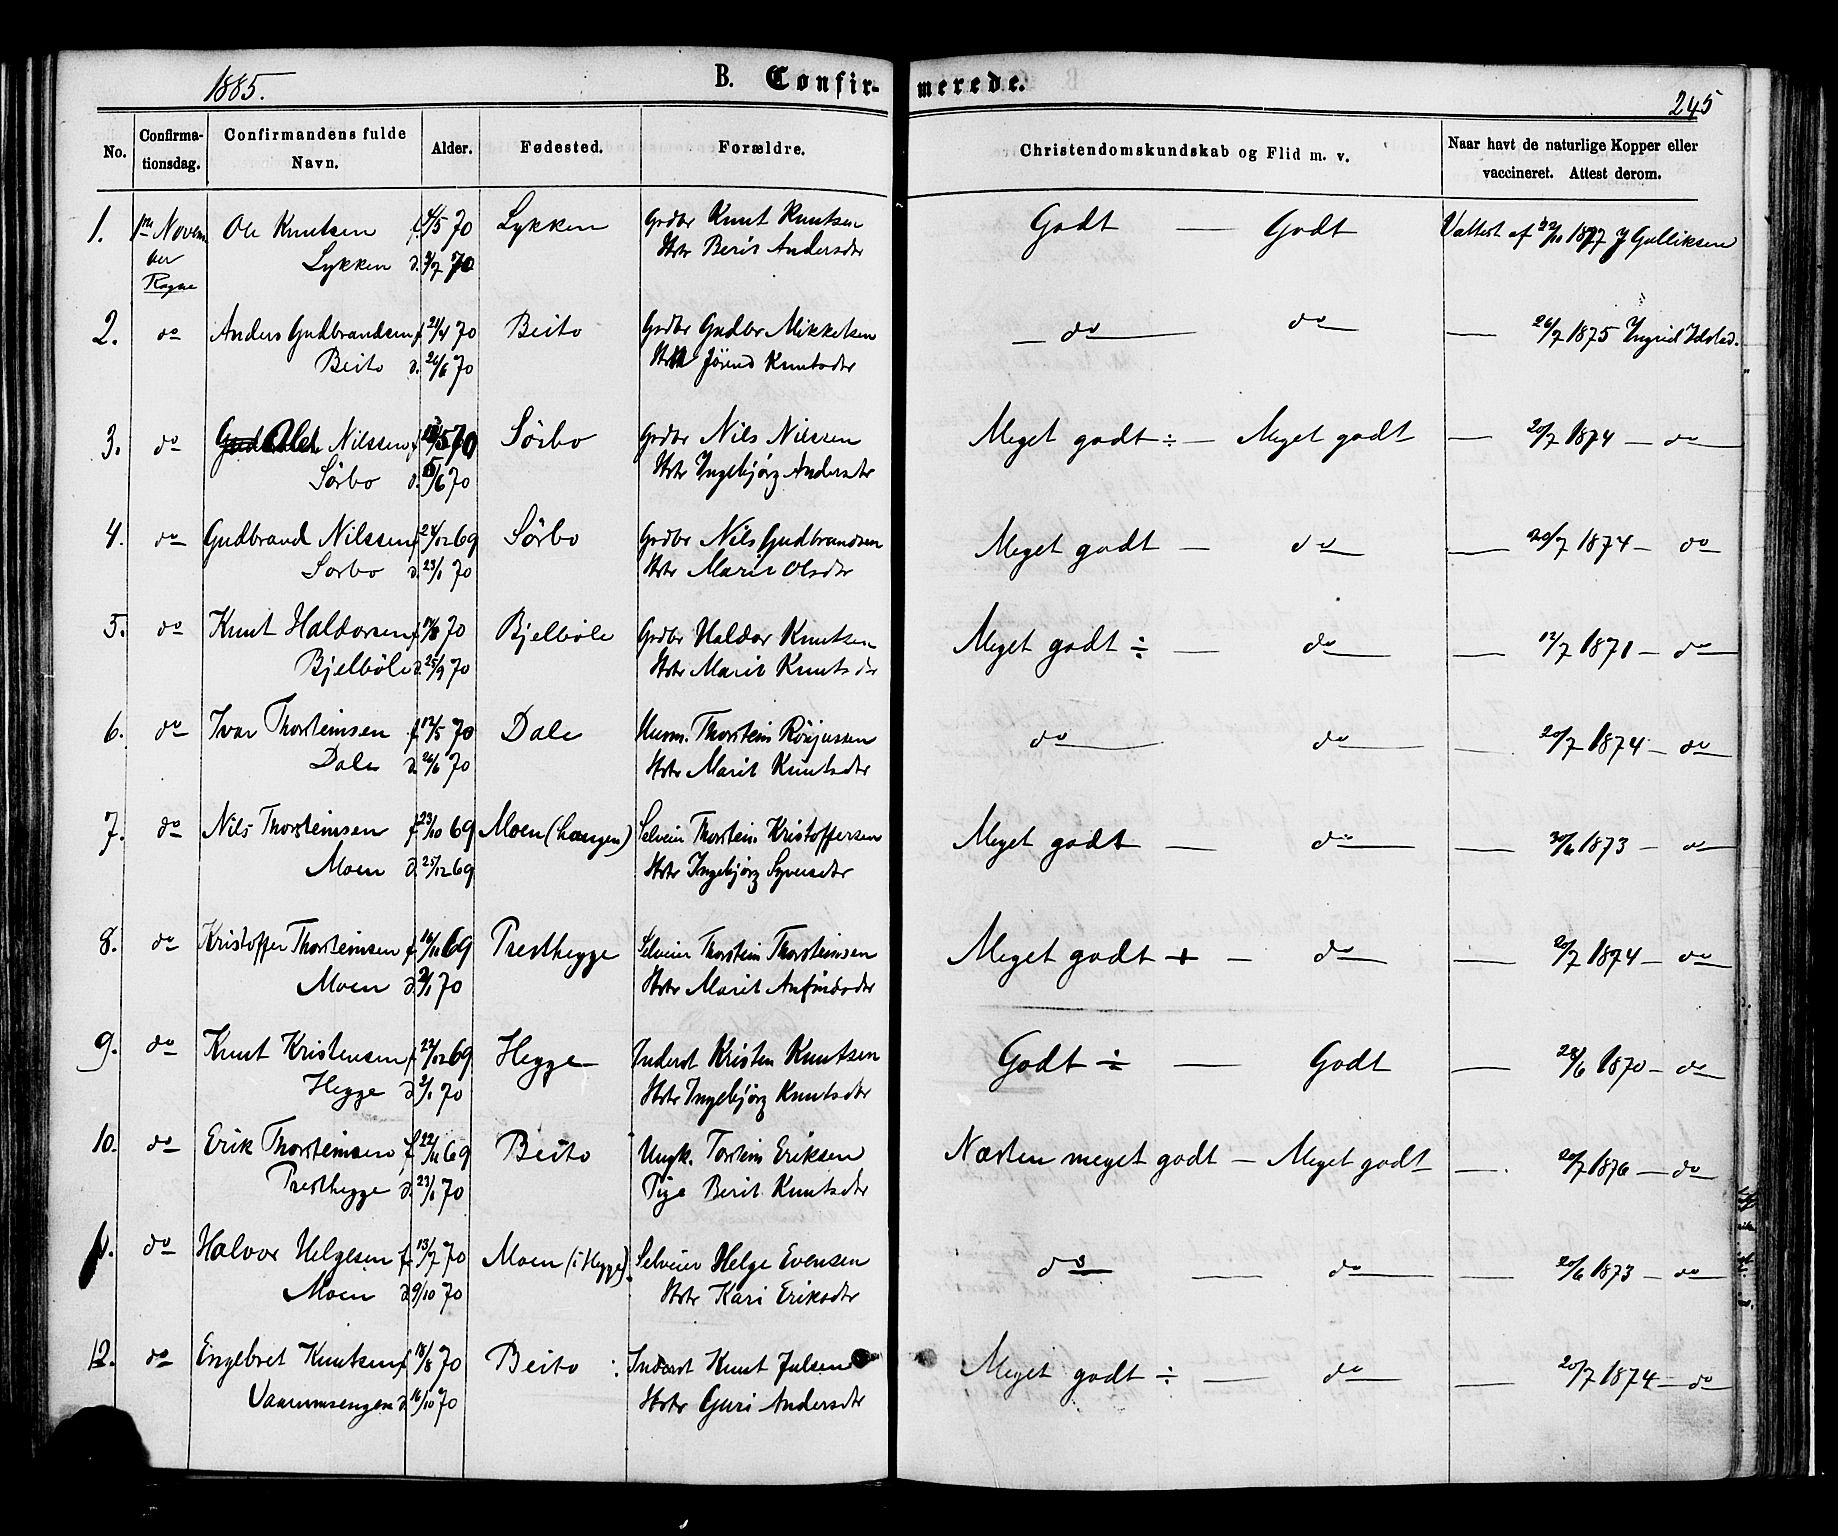 1885. B. Confir- merede. 245
No. Confirma- tionsdag. Confirmandens fulde Navn. Alder. Fødested. Forældre. Christendomskundskab og Flid m. v. Naar havt de naturlige Kopper eller vaccineret. Attest derom.
1. 1ste Novem Ole Knutsen f. 4/5 70 Lykken Grdbr Knut Knutsen Godt — Godt Vattest af 22/10 1877 J Gulliksen
ber Lykken d. 3/7 70 Hstr Berit Andersdtr
Rogne
2. do Anders Gudbrandsen f. 21/4 70 Beito Grdbr Gudbr Mikkelsen — do — do — 26/7 1875 Ingrid Idstad.
Beito d. 26/6 70 Hstr Jörend Knutsdtr
3. do Olet Nilssen f. 5 70 Sörbo Grdbr Nils Nilssen Meget godt ÷ — Meget godt — 20/7 1874 — do
Sörbo d. 5/6 70 Hstr Ingebjörg Andersdtr
4. do Gudbrand Nilssen f. 24/12 69 Sörbo Grdbr Nils Gudbrandsen Meget godt — do — 20/7 1874 — do
Sorbo d. 23/1 70 Hstr Marit Olsdtr
5. do Knut Haldorsen f. 14/8 70 Bjelböle Grdbr Haldor Knutsen Meget godt ÷ — do — 12/7 1871 — do
Bjelböle d. 25/9 70 Hstr Marit Knutsdtr
6. do Ivar Thorsteinsen f. 12/5 70 Dale Husm. Thorstein Rönjussen do — do — 20/7 1874 — do
Dale d. 26/6 70 Hstr Marit Knutsdtr
7. do Nils Thorsteinsen f. 23/10 69 Moen (haugen) Selveier Thorstein Kristoffersen Meget godt — do — 30/6 1873 — do
Moen d. 25/12 69 Hstr Ingebjörg Syversdtr
8. do Kristoffer Thorsteinsen f. 16/11 69 Presthegge Selveier Thorstein Thorsteinsen Meget godt + — do — 20/7 1874 — do
Moen d. 2/1 70 Hstr Marit Anfindsdtr
9. do Knut Kristensen f. 22/12 69 Hegge Inderst Kristen Knutsen Godt ÷ — Godt — 28/6 1870 — do
Hegge d. 2/1 70 Hstr Ingebjörg Knutsdtr
10. do Erik Thorsteinsen f. 22/11 69 Beito Ungk. Torstein Eriksen Næsten meget godt — Meget godt — 20/7 1876 — do
Presthegge d. 23/1 70 Pige Berit Knutsdtr
11. do Halvor Helgesen f. 13/7 70 Moen (i Hegge) Selveier Helge Evensen do — do — 20/6 1873 — do
Moen d. 9/10 70 Hstr Kari Eriksdtr
12. do Engebret Knutsen f. 18/8 70 Beito : Inderst Knut Julsen Meget godt ÷ — do — 20/7 1874 — do
Vaarumsengen d. 16/10 70 Hstr Guri Andersdtr